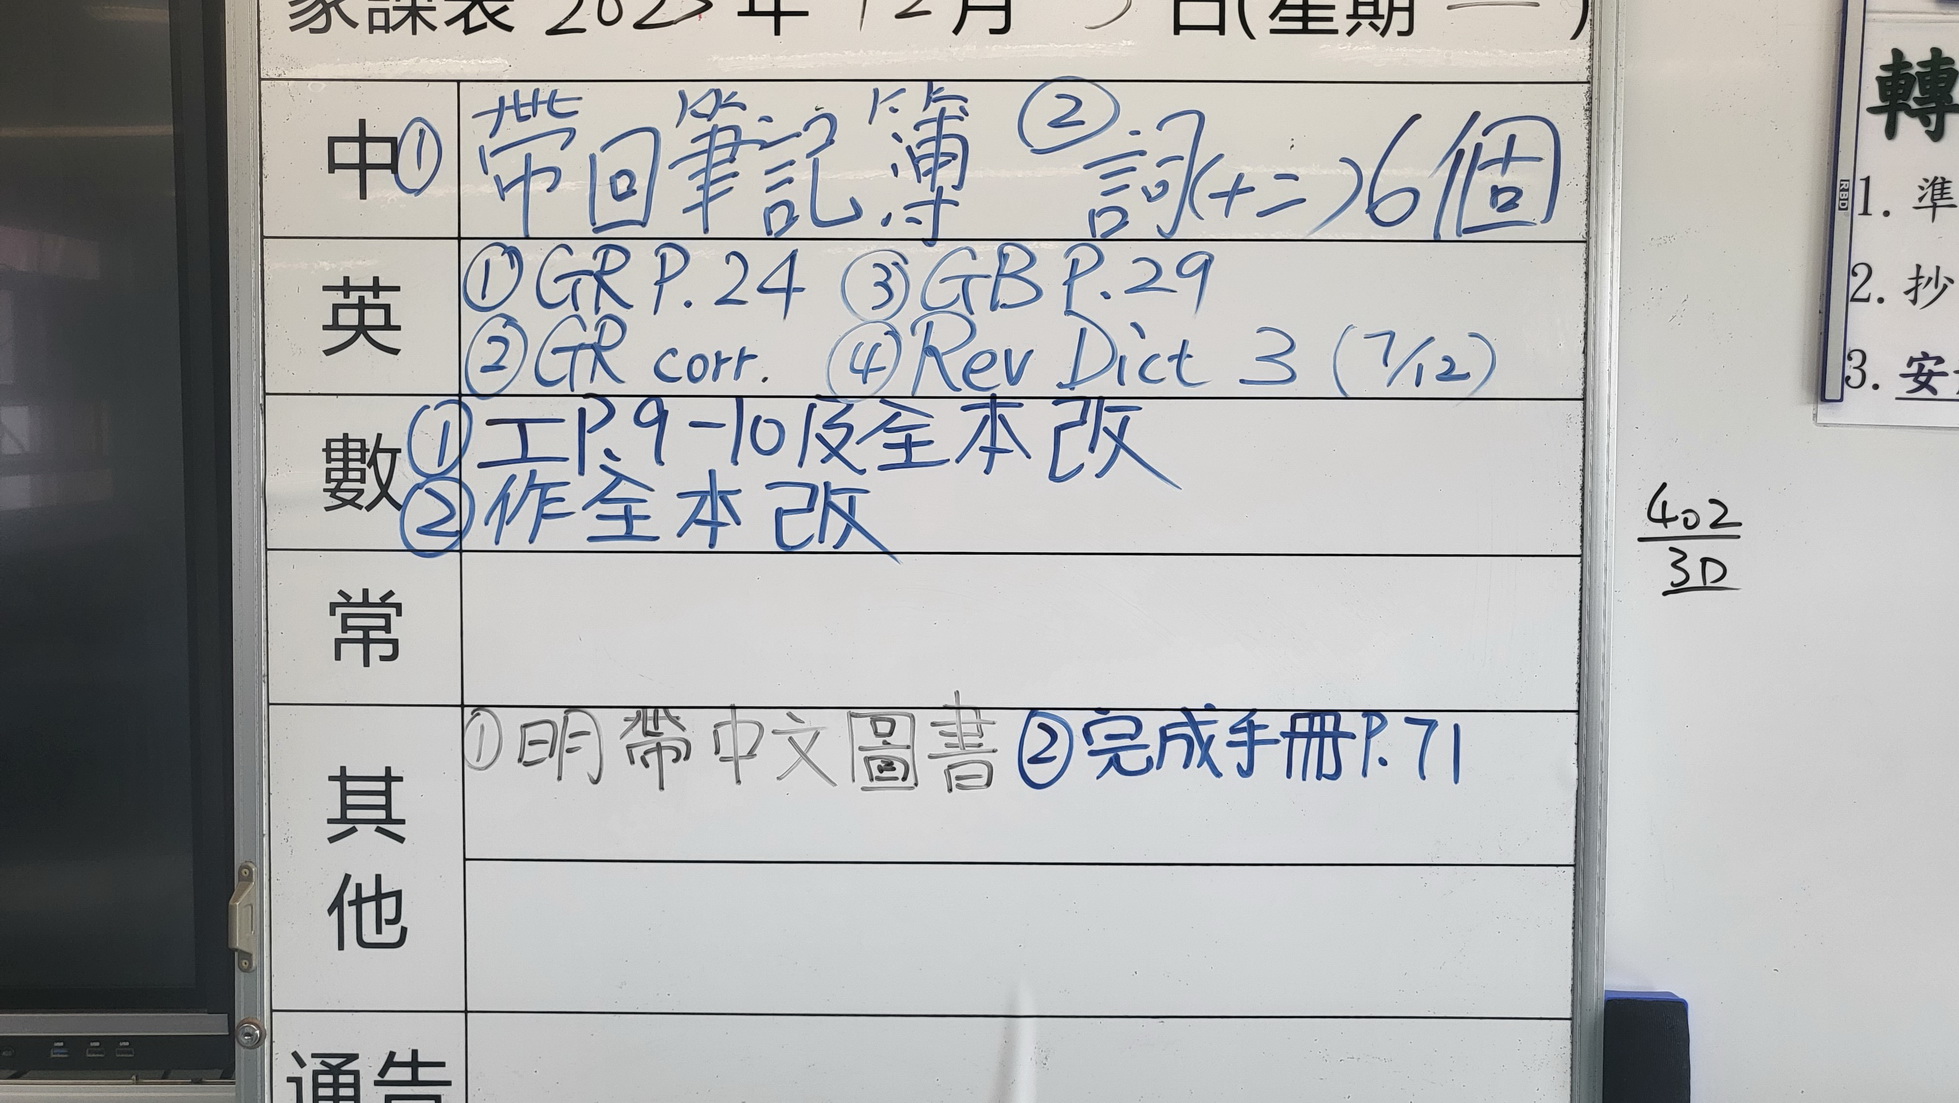 家課表 2023年 12月 5日(星期二)
中 ① 帶回筆記簿 ② 詞(十二)6個
英 ① GR P.24 ③ GB P.29
② GR corr. ④ Rev Dict 3 (7/12)
數 ① 工P.9-10及全本改
② 作全本改
常
其他 ① 明帶中文圖書 ② 完成手冊P.71
通告
402
3D
轉
1. 準
2. 抄
3. 安
RBD